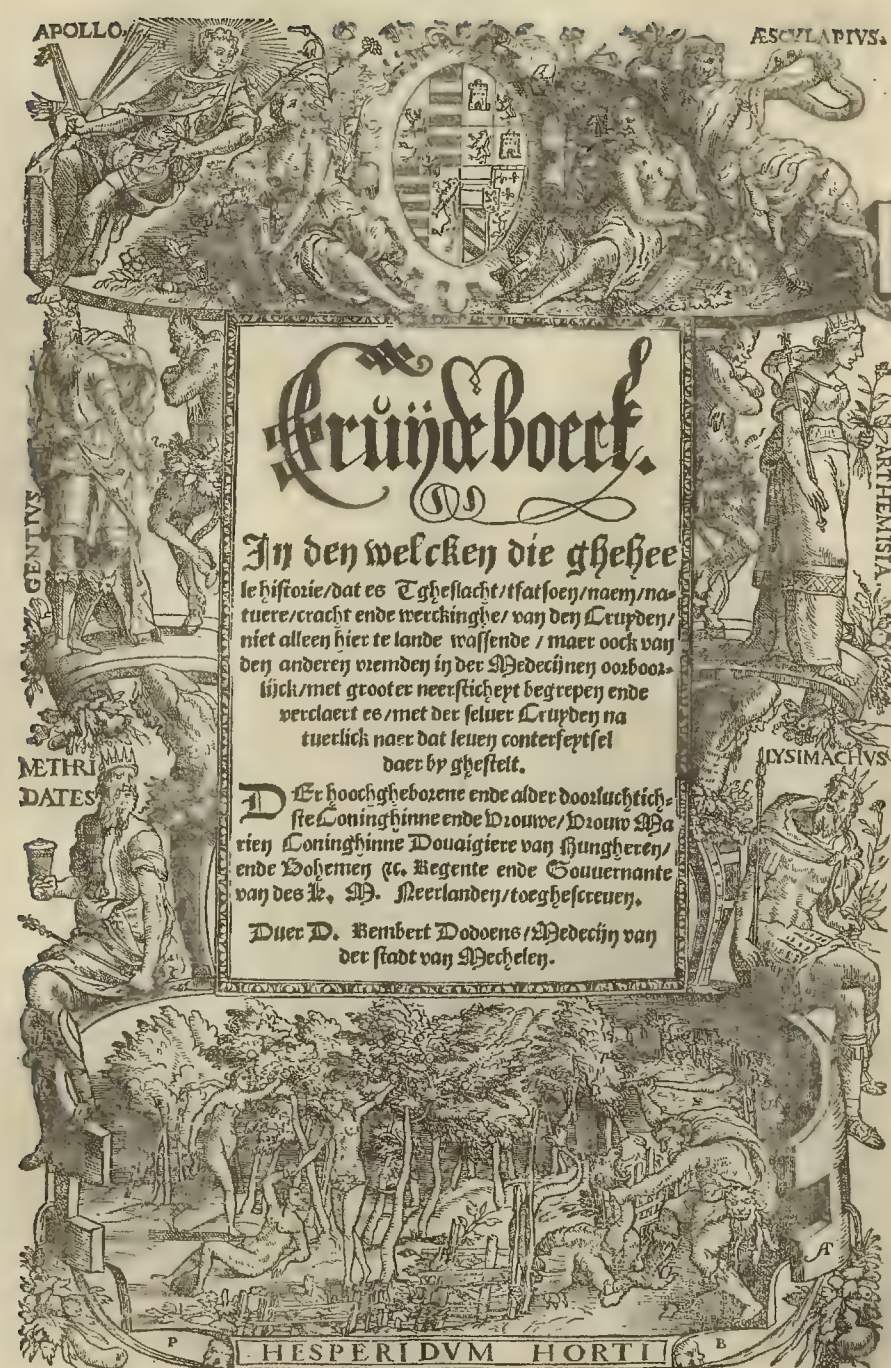 APOLLO.
ÆSCVLAPIVS.
GENTIVS
ARTHEMISIA
Crůÿdeboeck.
In den welcken die ghehee
le historie/dat es Tgheslacht/tfatsoen/naem/na-
tuere/cracht ende werckinghe/ van den Cruyden/
niet alleen hier te lande wassende / maer oock van
den anderen vremden in der Medecijnen oorboor-
lijck/met grooter neersticheyt begrepen ende
verclaert es/met der seluer Cruyden na
tuerlick naer dat leuen conterfeytsel
daer by ghestelt.
METHRI
DATES
LYSIMACHVS
DEr hoochgheborene ende alder doorluchtich-
ste Coninghinne ende Vrouwe/Vrouw Ma
rien Coninghinne Douaigiere van Hungheren/
ende Bohemen ꝛc. Regente ende Gouuernante
van des K. M. Neerlanden/toeghescreuen.
Duer D. Rembert Dodoens/Medecijn van
der stadt van Mechelen.
A
P
B
HESPERIDVM HORTI